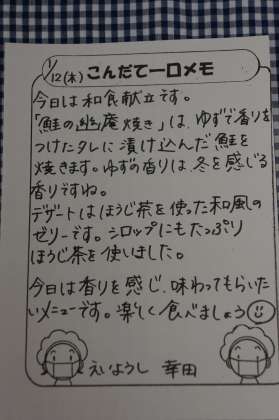 1/12(木) こんだて一口メモ
今日は和食献立です。
「鮭の幽庵焼き」は、ゆずで香りを
つけたタレに漬け込んだ鮭を
焼きます。ゆずの香りは、冬を感じる
香りですね。
デザートはほうじ茶を使った和風の
ゼリーです。シロップにもたっぷり
ほうじ茶を使いました。
今日は香りを感じ、味わってもらいた
いメニューです。楽しく食べましょう
えいようし 幸田